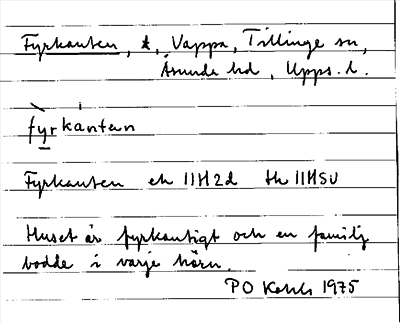 Fyrkanten, t, Vappa, Tillinge sn,
Åsunda hd, Upps. l.
fyrkànten
Fyrkanten ek 11H2d th 11HSU
Huset är fyrkantigt och en familj
bodde i varje hörn.
PO 1975